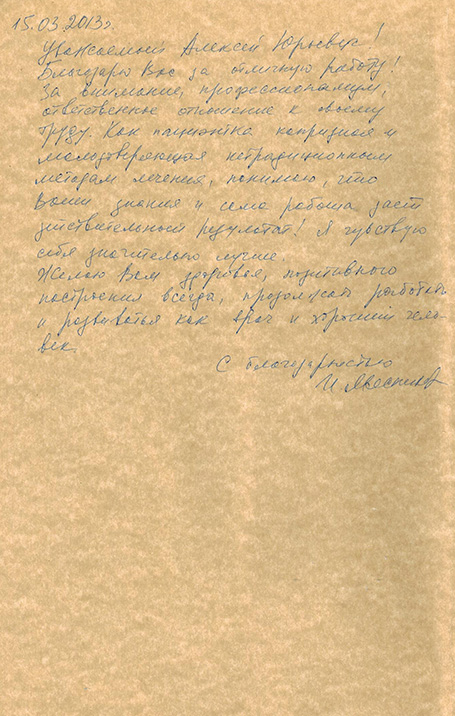 15.03.2013г
Уважаемый Алексей Юрьевич!
Благодарю Вас за отличную работу!
За внимание, профессионализм,
ответственное отношение к своему
труду. Как пациентка капризная и
малодоверяющая нетрадиционным
методам лечения, понимаю, что
Ваши знания и сама работа дает
действительный результат! Я чувствую
себя значительно лучше.
Желаю Вам здоровья, позитивного
настроения всегда, продолжать работать
и развиваться как врач и хороший чело-
век.
С благодарностью
И.